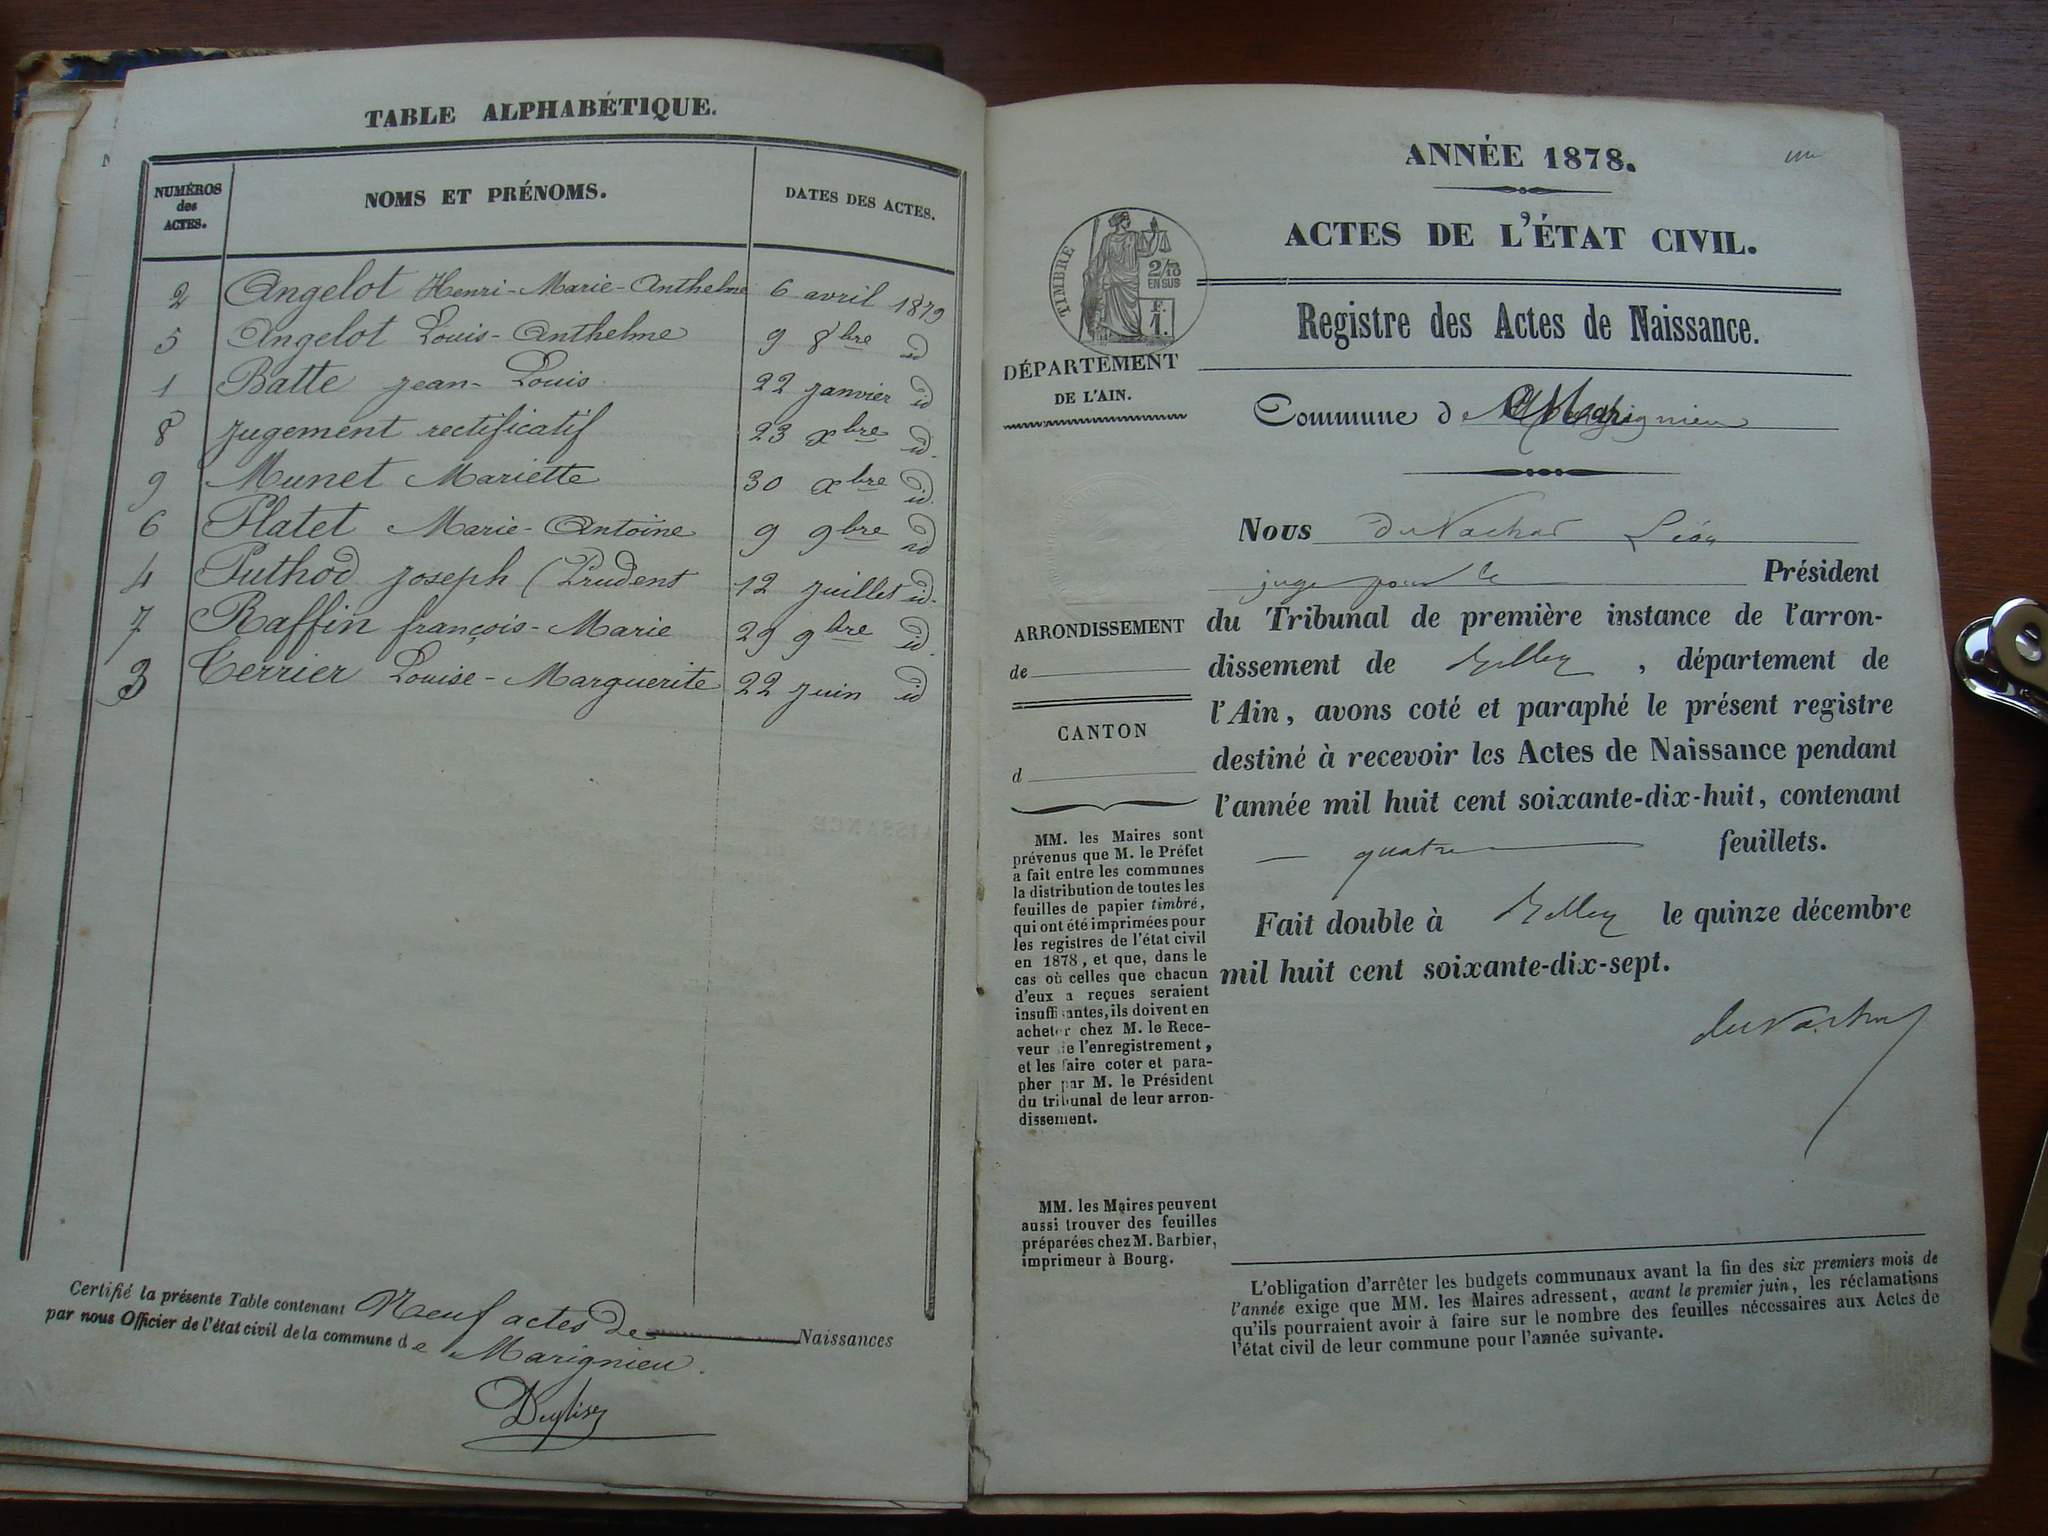 TABLE ALPHABÉTIQUE.
NUMÉROS
des
ACTES.
NOMS ET PRÉNOMS.
DATES DES ACTES.
2 Angelot Henri-Marie-Anthelme 6 avril 1879
5 Angelot Louis-Anthelme 9 8bre id
1 Batte Jean-Louis 22 Janvier id
8 Jugement rectificatif 23 xbre id.
9 Munet Mariette 30 xbre id.
6 Platet Marie-Antoine 9 9bre id
4 Puthod Joseph (Prudent 12 Juillet id.
7 Raffin françois-Marie 29 9bre id.
3 Terrier Louise-Marguerite 22 Juin id
Certifié la présente Table contenant Neuf actes de Naissances
par nous Officier de l'état civil de la commune de Marignieu.
ANNÉE 1878.
ACTES DE L'ÉTAT CIVIL.
TIMBRE
2/10
EN SUS
F.
1.
Registre des Actes de Naissance.
DÉPARTEMENT
DE L'AIN.
Commune de Marignieu
Nous du Nachat Léon
juge pour le Président
du Tribunal de première instance de l'arron-
dissement de Belley, département de
l'Ain, avons coté et paraphé le présent registre
destiné à recevoir les Actes de Naissance pendant
l'année mil huit cent soixante-dix-huit, contenant
— quatre feuillets.
Fait double à Belley le quinze décembre
mil huit cent soixante-dix-sept.
ARRONDISSEMENT
de
CANTON
d
MM. les Maires sont
prévenus que M. le Préfet
a fait entre les communes
la distribution de toutes les
feuilles de papier timbré,
qui ont été imprimées pour
les registres de l'état civil
en 1878, et que, dans le
cas où celles que chacun
d'eux a reçues seraient
insuffisantes, ils doivent en
acheter chez M. le Rece-
veur de l'enregistrement,
et les faire coter et para-
pher par M. le Président
du tribunal de leur arron-
dissement.
MM. les Maires peuvent
aussi trouver des feuilles
préparées chez M. Barbier,
imprimeur à Bourg.
L'obligation d'arrêter les budgets communaux avant la fin des six premiers mois de
l'année exige que MM. les Maires adressent, avant le premier juin, les réclamations
qu'ils pourraient avoir à faire sur le nombre des feuilles nécessaires aux Actes de
l'état civil de leur commune pour l'année suivante.